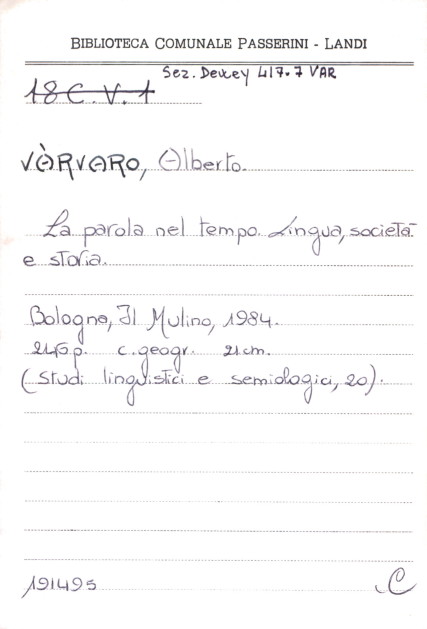 BIBLIOTECA COMUNALE PASSERINI - LANDI
Sez. Dewey 417.7 VAR
18 C. V. 1
VÀRVARO, Alberto.
La parola nel tempo. Lingua, società
e storia.
Bologna, Il Mulino, 1984.
246 p. c.geogr. 21 cm.
(Studi linguistici e semiologici, 20).
191495
C